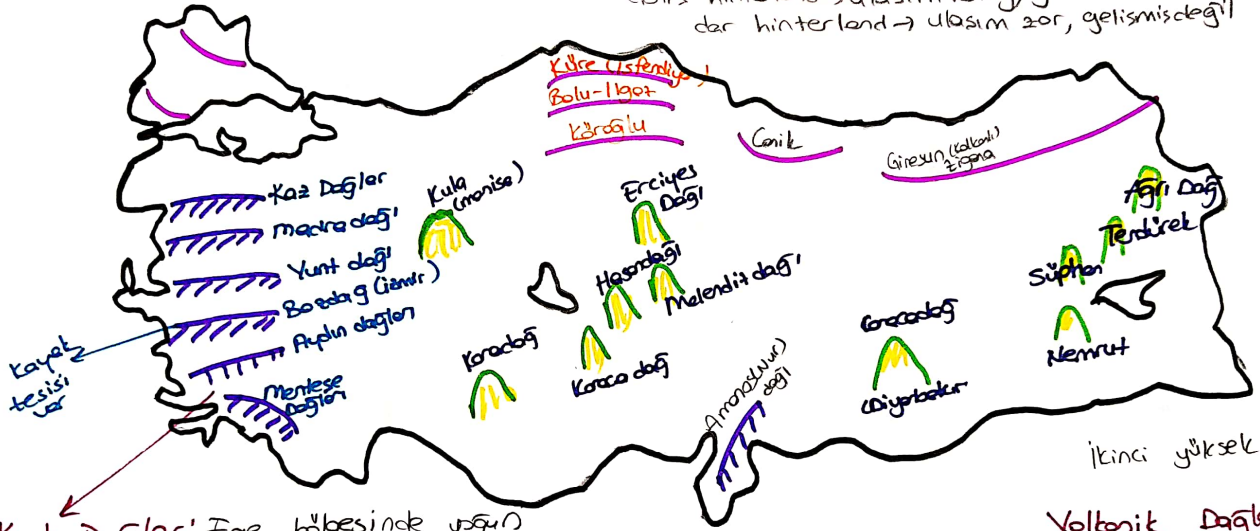 dar hinterland → ulaşım zor, gelişmiş değil
Küre (İsfendiyar)
Bolu-Ilgaz
Köroğlu
Canik
Giresun (Kalkanlı)
Zigana
Kaz Dağlar
Madra dağı
Yunt dağı
Bozdağ (izmir)
Aydın dağları
Menteşe
Dağları
Kayak
tesisi
var
Kula
(manisa)
Erciyes
Dağı
Hasandağı
Melendiz dağı
Karacadağ
Karadağ
Amanos (Nur)
dağı
Karacadağ
(Diyarbakır
Ağrı Dağ
Tendürek
Süphan
Nemrut
İkinci yüksek
Ege bölgesinde yoğun
Volkanik Dağla